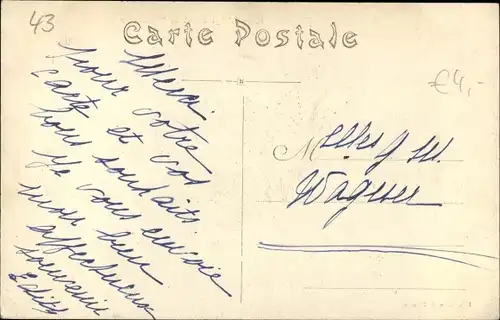 43
Carte Postale
€4,-
Merci
pour votre
carte et vos
bons souhaits.
Je vous envoie
mon bien
affectueux
souvenir
Edith
M elles J M.
Wagner